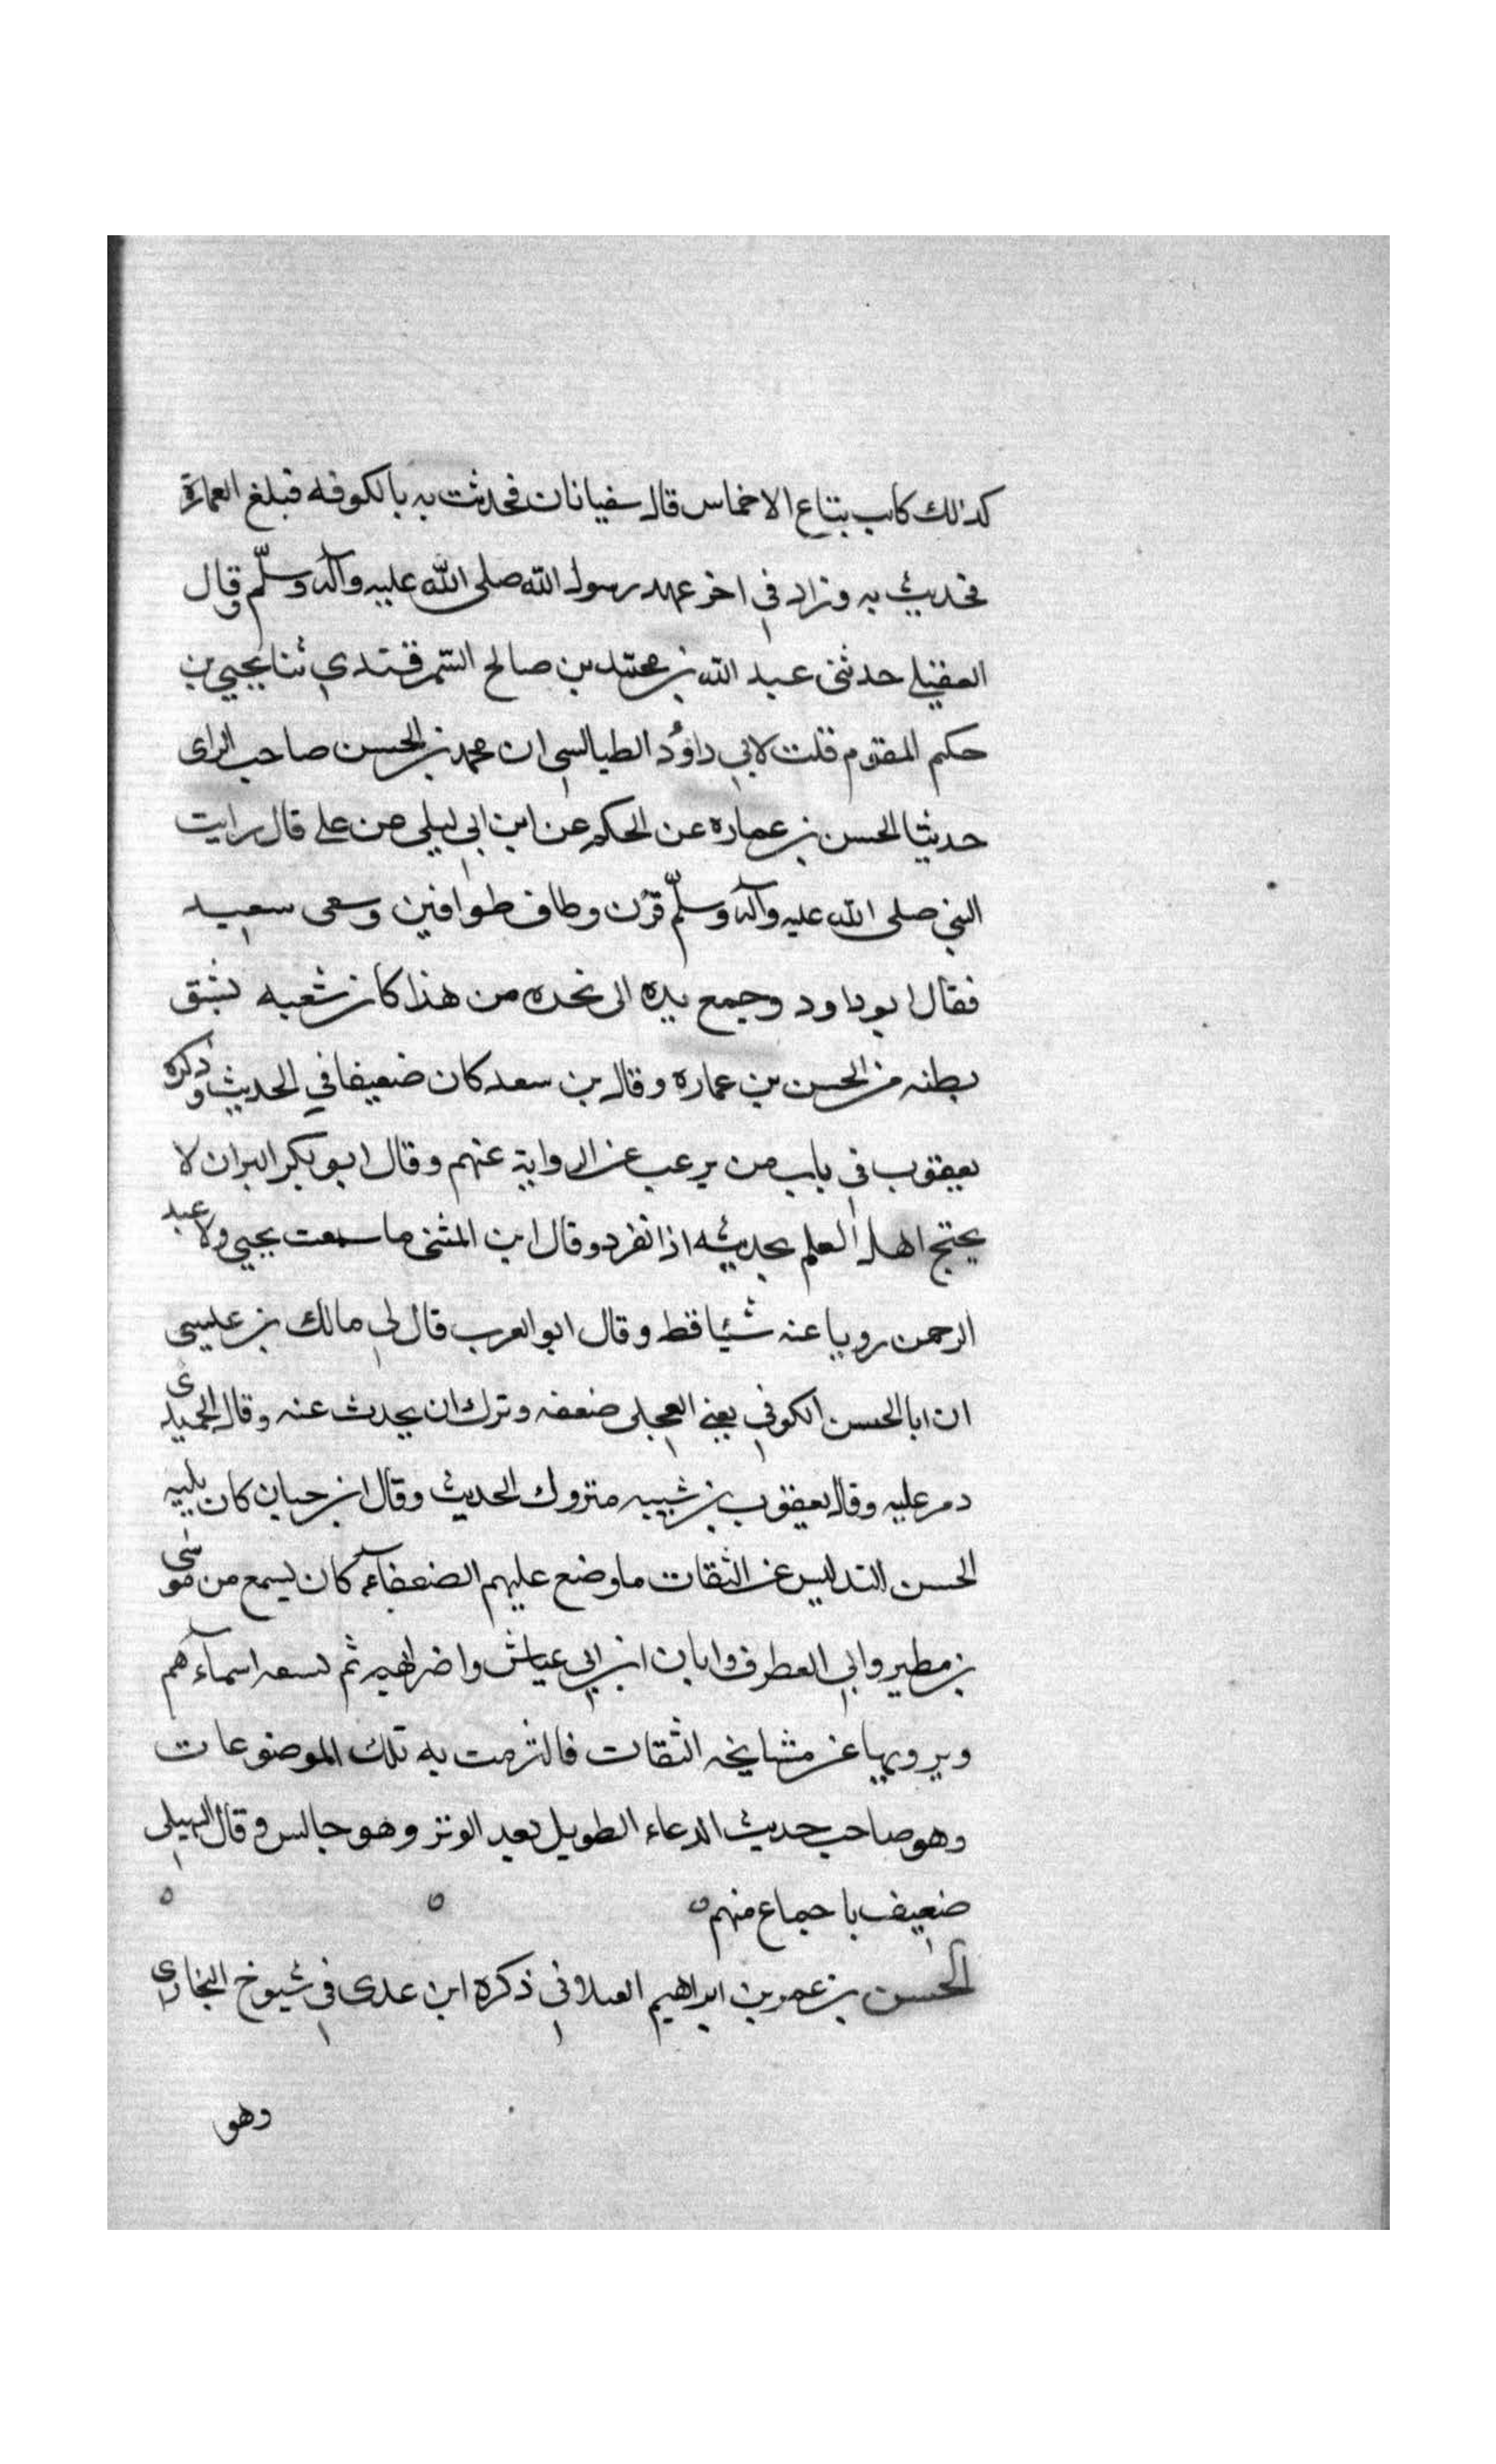 كذلك كاب بتناع الاخماس قال سفيانان فحدثت به بالكوفه فبلغ العمارة
فحديث به وزاد في اخر عهد رسول الله صلى الله عليه وآله وسلّم وقال
العقيلي حدثنى عبد الله بن محمد بن صالح السمرقندي ثنا يحيى بن
حكيم المقوم قلت لابي داؤد الطيالسي ان محمد بن الحسن صاحب الراى
حدثنا الحسن بن عماره عن الحكم عن ابن ابي ليلى عن على قال رايت
النبي صلى الله عليه وآله وسلّم قرن وطاف طوافين وسعى سعيد
فقال ابو داود وجمع يده الى نحره من هذا كان شعبه يشق
بطنه من الحسن بن عماره وقال بن سعد كان ضعيفا في الحديث وذكره
يعقوب في باب من يرغب عن الرواية عنهم وقال ابو بكر البزان لا
يحتج اهل العلم بحديثه اذا نفرد وقال ابن المثنى ما سمعت يحيى ولا عبد
الرحمن رويا عنه شيئا قط وقال ابو العرب قال لي مالك بن عيسى
ان ابا الحسن الكوفي يعني العجلى ضعفه وترك ان يحدث عنه وقال الحميدى
دمر عليه وقال يعقوب بن شيبه متروك الحديث وقال ابن حبان كان بليه
الحسن التدليس عن الثقات ما وضع عليهم الضعفاء كان يسمع من موسى
بن مطير وابي العطوف وابان ابن ابي عياش واضرابهم ثم يسعه اسماءهم
ويرويها عن مشايخه الثقات فالتزمت به تلك الموضوعات
وهو صاحب حديث الدعاء الطويل بعد الوتر وهو جالس وقال السهيلى
ضعيف باجماع منهم
الحسن بن عمر بن ابراهيم العبلانى ذكره ابن عدى في شيوخ البخارى
وهو